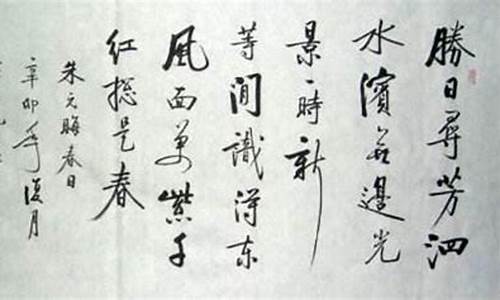 勝日尋芳泗
水濱無邊光
景一時新
等閒識得东
風面萬紫千
紅總是春
朱元晦春日
辛卯年復月